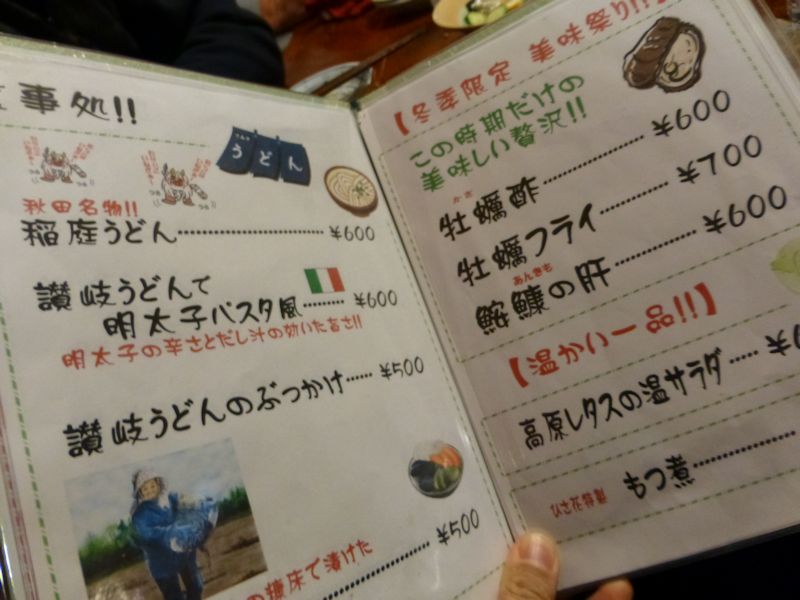 事処!!
うどん
秋田名物!!
稲庭うどん ¥600
讃岐うどんで
明太子パスタ風 ¥600
明太子の辛さとだし汁の効いたうまさ!!
讃岐うどんのぶっかけ ¥500
の糠床で漬けた
¥500
【冬季限定 美味祭り!!
この時期だけの
美味しい贅沢!!
かき
牡蠣酢 ¥600
牡蠣フライ ¥700
あんきも
鮟鱇の肝 ¥600
【温かい一品!!】
高原レタスの温サラダ
もつ煮